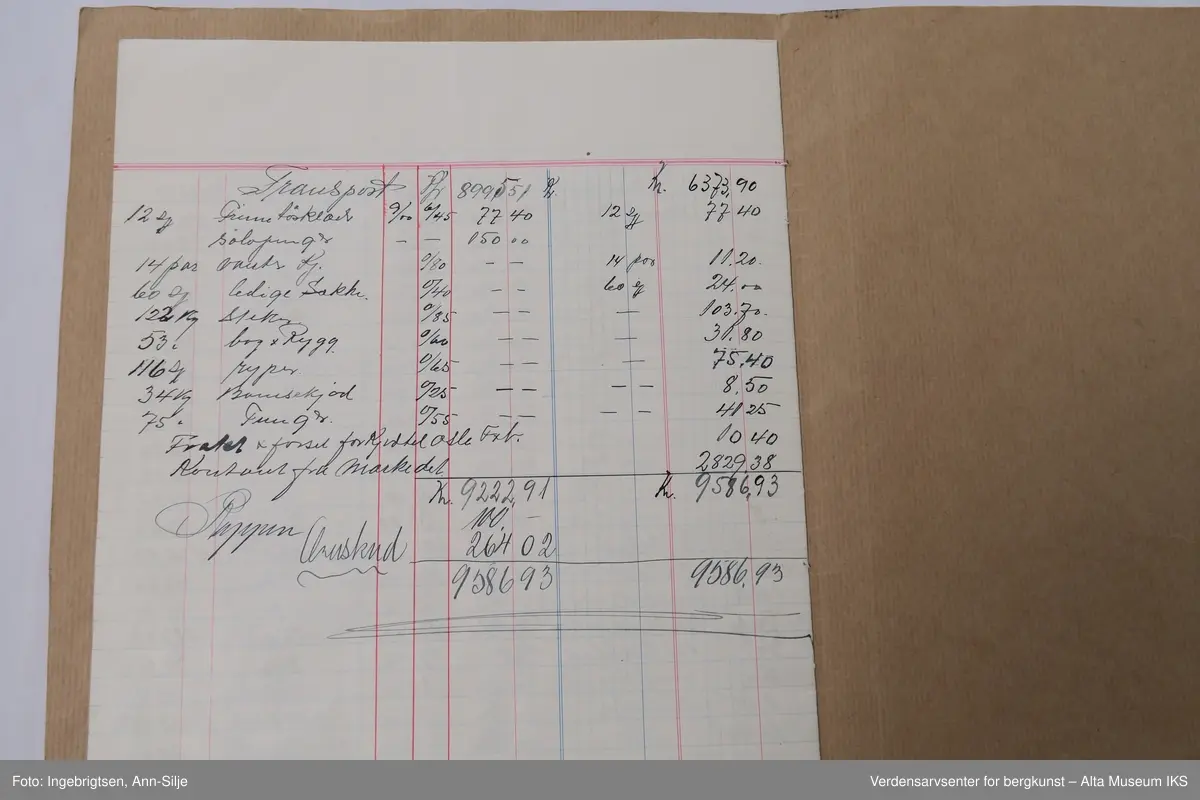 Transport Kr 8995 51 Kr. Kr. 6373,90
12 sq 9/00 6/45 77 40 12 sq 77 40
— — 150 00
14 par vanter 0/80 — — 14 par 11.20.
60 sq ledige Sække. 0/40 — — 60 sq 24.00
122 Kg Stek 0/85 — — — 103.70.
53 " bog & Rygg 0/60 — — — 31.80
116 sq ryper 0/65 — — — 75.40
34 Kg 0/25 — — — — 8.50
75 " 0/55 — — — — 41 25
Frakt & forsel for 10 40
Kontant fra Markedet 2829.38
Kr. 9222,91 Kr. 9586,93
100, —
264 02
9586 93 9586,93
Foto: Ingebrigtsen, Ann-Silje
Verdensarvsenter for bergkunst – Alta Museum IKS